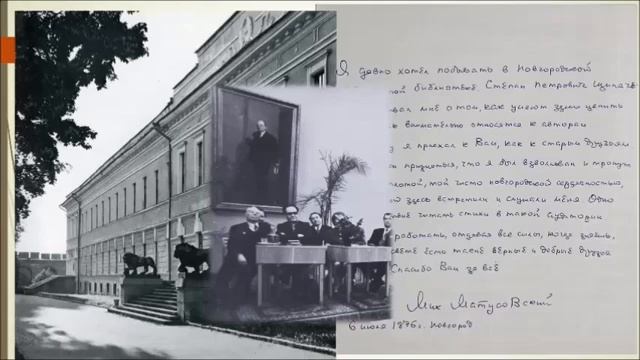 Я давно хотел побывать в Новгородской
библиотеке. Степан Петрович Щипачёв
мне о том, как умеют здесь ценить
внимательно относятся к авторам
я приехал к Вам, как к старым друзьям.
что я был взволнован и тронут
той чисто новгородской сердечностью,
здесь встретили и слушали меня. Одно
читать стихи в такой аудитории
работать, отдавая все силы, когда знаешь,
есть такие верные и добрые друзья
Спасибо Вам за всё
Мих Матусовский
6 июля 1976 г. Новгород